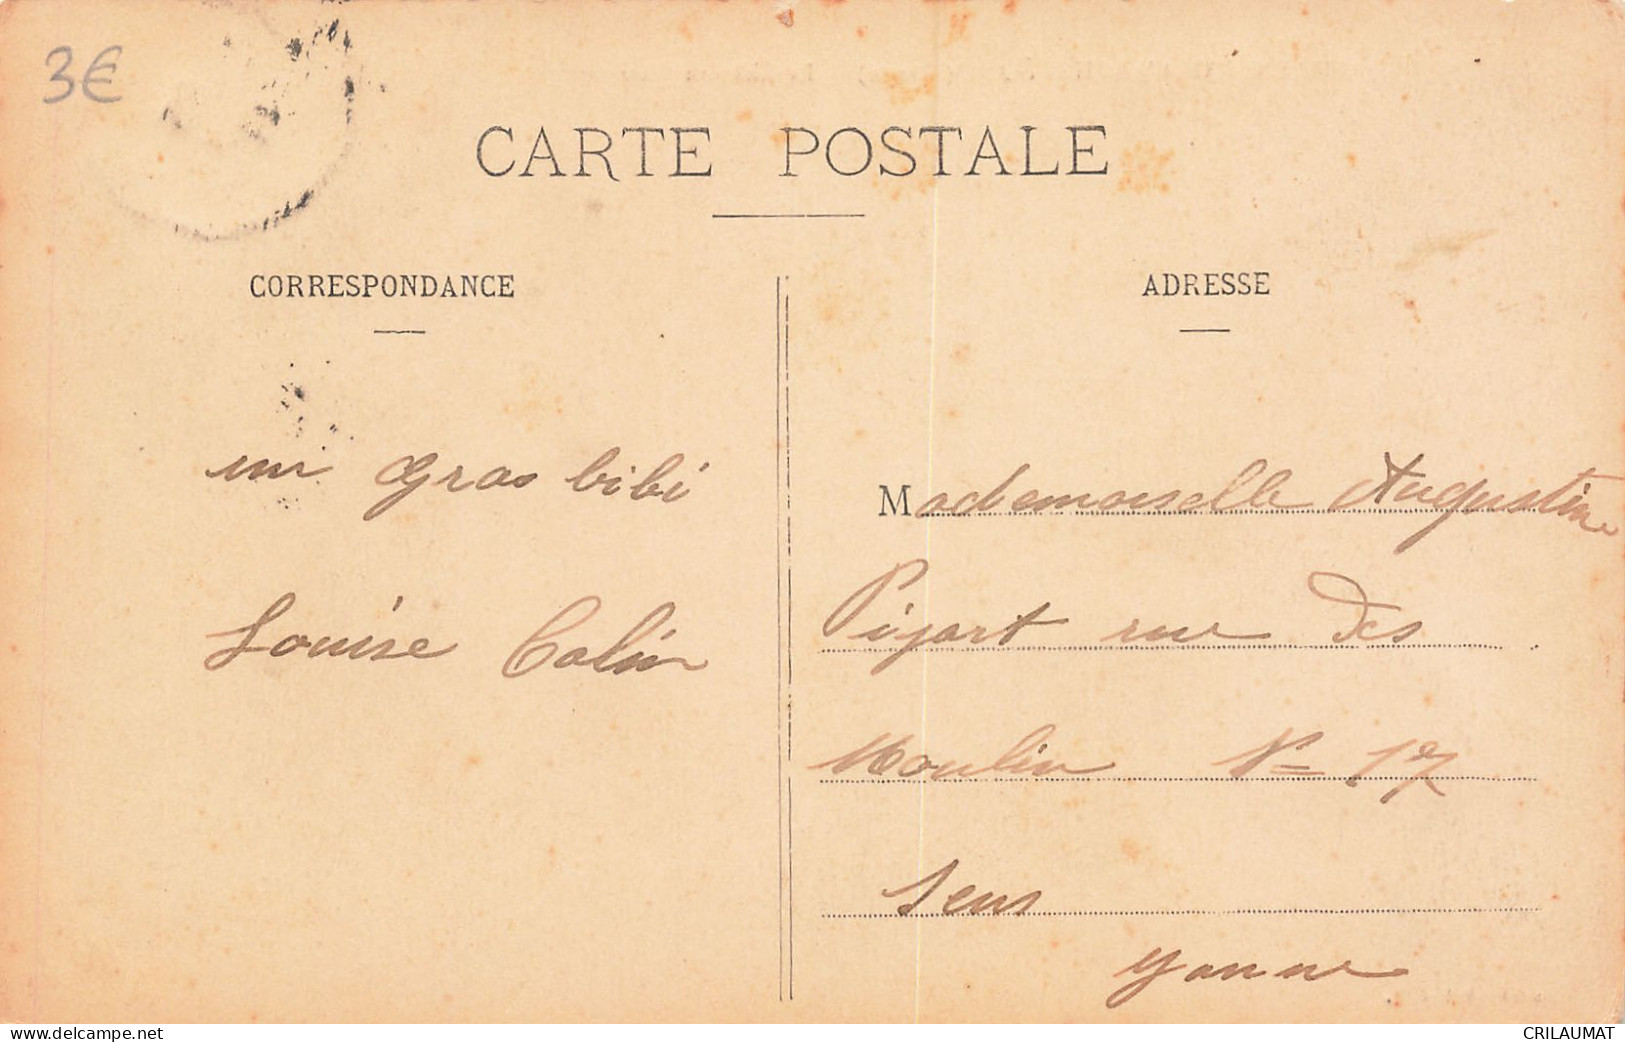 3€
CARTE POSTALE
CORRESPONDANCE
ADRESSE
un gros bibi
Louise Colin
Mademoiselle Augustine
Pijart rue des
Moulin N= 17
Sens
Yonne
www.delcampe.net
CRILAUMAT